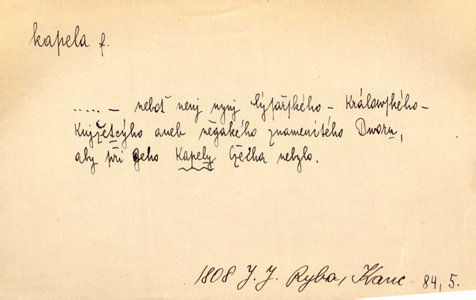 kapela f.
..... – neboť nenj nynj Cýsařského – Králowského –
Knjžetcýho aneb negakého znamenitého Dworu,
aby při geho Kapely Čecha nebylo.
1808 J. J. Ryba, Kanc. 84, 5.